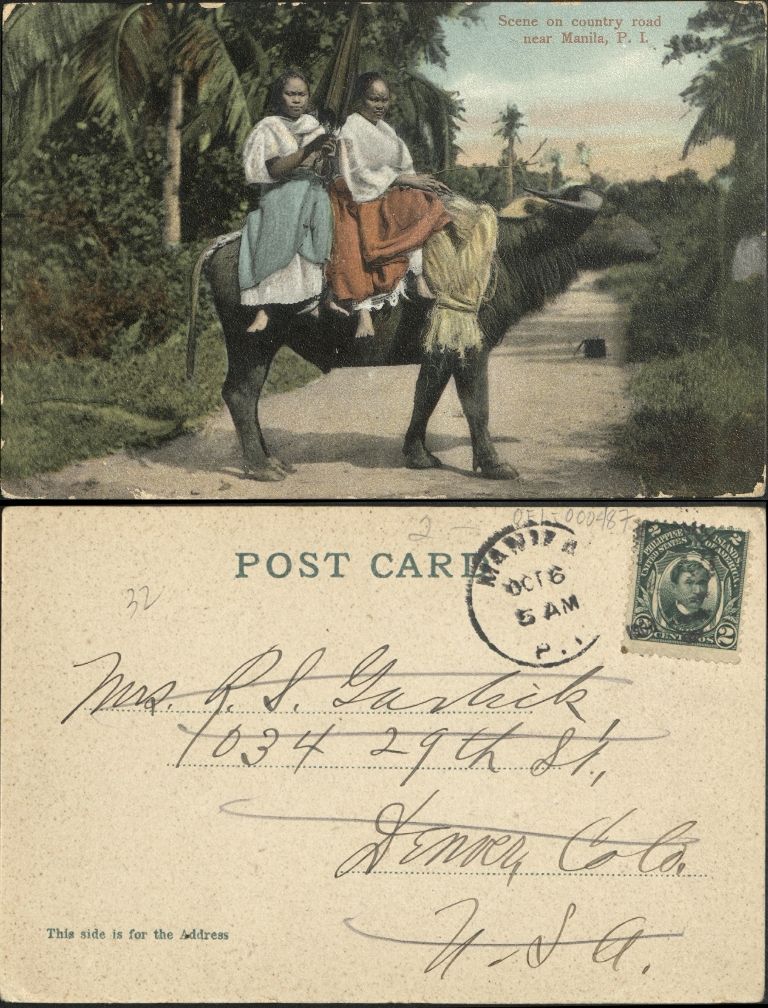 Scene on country road
near Manila, P. I.
2 -
OEL-000487
POST CARD
MANILA
OCT 6
5 AM
P. I.
2 2
PHILIPPINE ISLANDS
UNITED STATES OF AMERICA
2 CENTVOS 2
32
Mrs. R. S.
1034 29th St.,
Denver, Colo.
U.S.A.
This side is for the Address